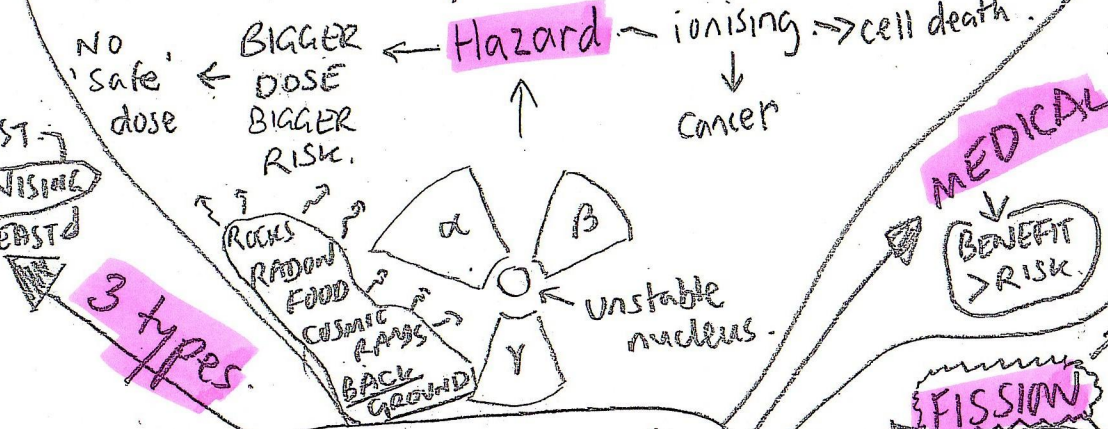 NO
'safe'
dose
BIGGER
DOSE
BIGGER
RISK.
Hazard
ionising
cell death.
Cancer
α
β
γ
unstable
nucleus.
ROCKS
RADON
FOOD
COSMIC
RAYS
BACK
GROUND
3 types.
MEDICAL
BENEFIT
>RISK.
FISSION